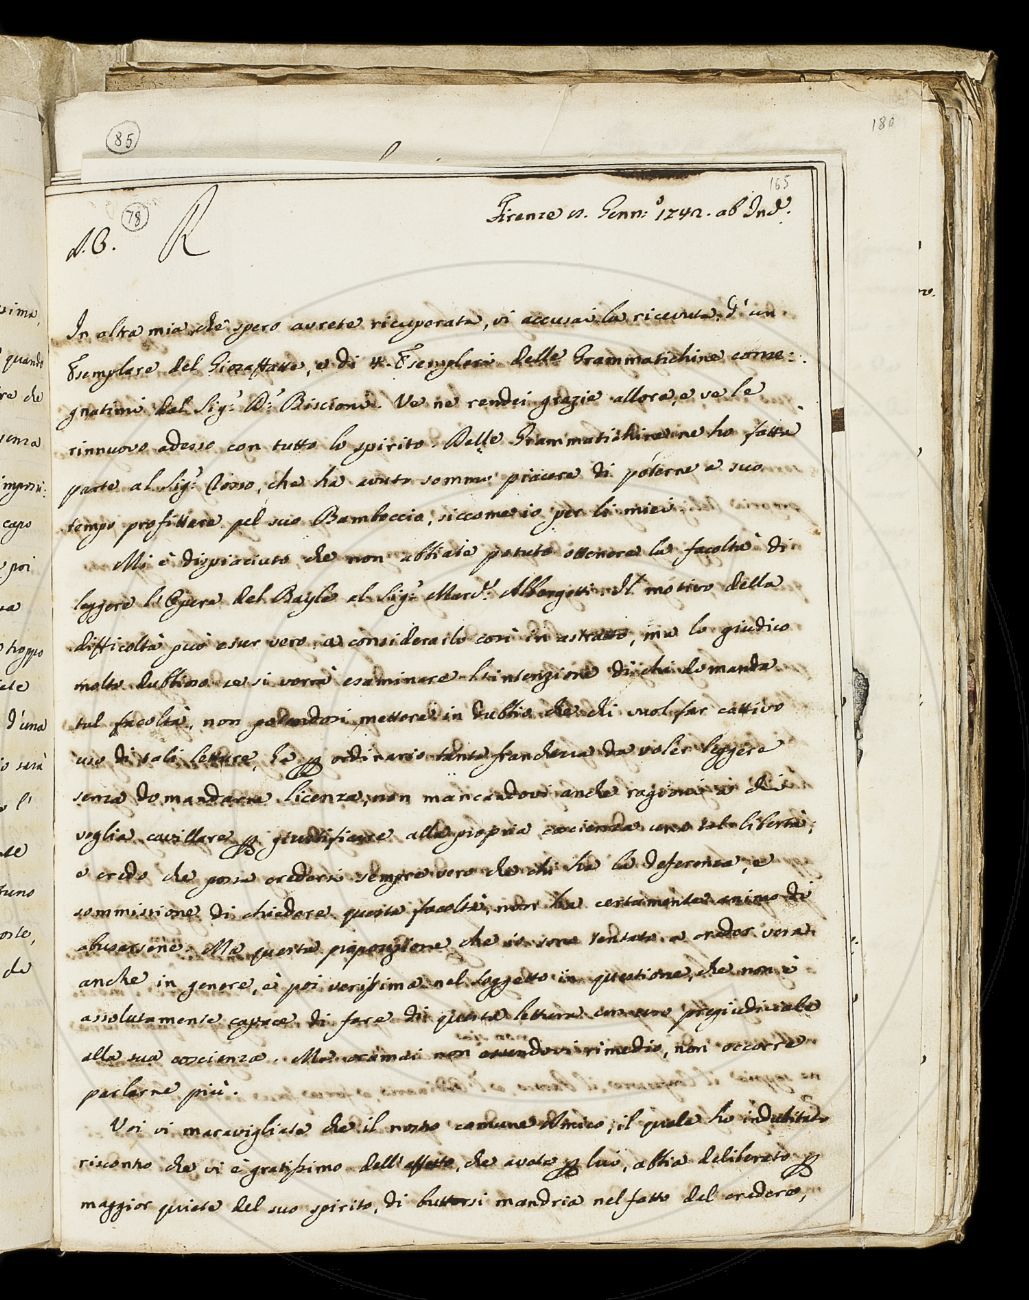 85
180
165
78
Firenze Genn.º 1742. ab Inc.
A. C. R
In altra mia che spero avrete ricuperata, vi accusai la ricevuta d'un
Esemplare del Giosaffatte, e di 4. Esemplari delle Grammatichine conse=
gnatimi dal Sig.r D.r Biscioni. Ve ne rendei grazie allora, e ve le
rinnuovo adesso con tutto lo spirito. Delle Grammatichine ne ho fatta
parte al Sig.r Cosso, che ha avuto sommo piacere di poterne a suo
tempo profittare pel suo Bamboccio, siccome io per li miei.
Mi è dispiaciuto che non abbiate potuto ottenere la facoltà di
leggere l'Opera del Bayle al Sig.r Albergotti. Il motivo della
difficoltà può esser vero, a considerarlo così in astratto, ma lo giudico
molto dubbioso se si vorrà esaminare l'intenzione di chi domanda
tal facoltà, non potendosi mettere in dubbio che chi vuol far cattivo
uso di tali letture, ha per ordinario tanta franchezza da voler leggere
senza domandarne licenza, non mancandovi anche ragioni a chi
voglia cavillare per giustificare alla propria coscienza una tal libertà;
e credo che possa credersi sempre vero che chi ha la deferenza, e
sommissione di chiedere questa facoltà, non ha certamente animo di
abusarsene. Ma questa proposizione che io sono tentato a creder vera
anche in genere, è poi verissima nel soggetto in questione, che non è
assolutamente capace di fare di questa lettura un uso pregiudiciale
alla sua coscienza. Ma oramai non essendovi rimedio, non occorre
parlarne più.
Voi vi maravigliate che il nostro comune Amico, il quale ho indubitato
riscontro che vi è gratissimo dell'affetto, che avete per lui, abbia deliberato per
maggior quiete del suo spirito, di buttarsi mandria nel fatto del credere,